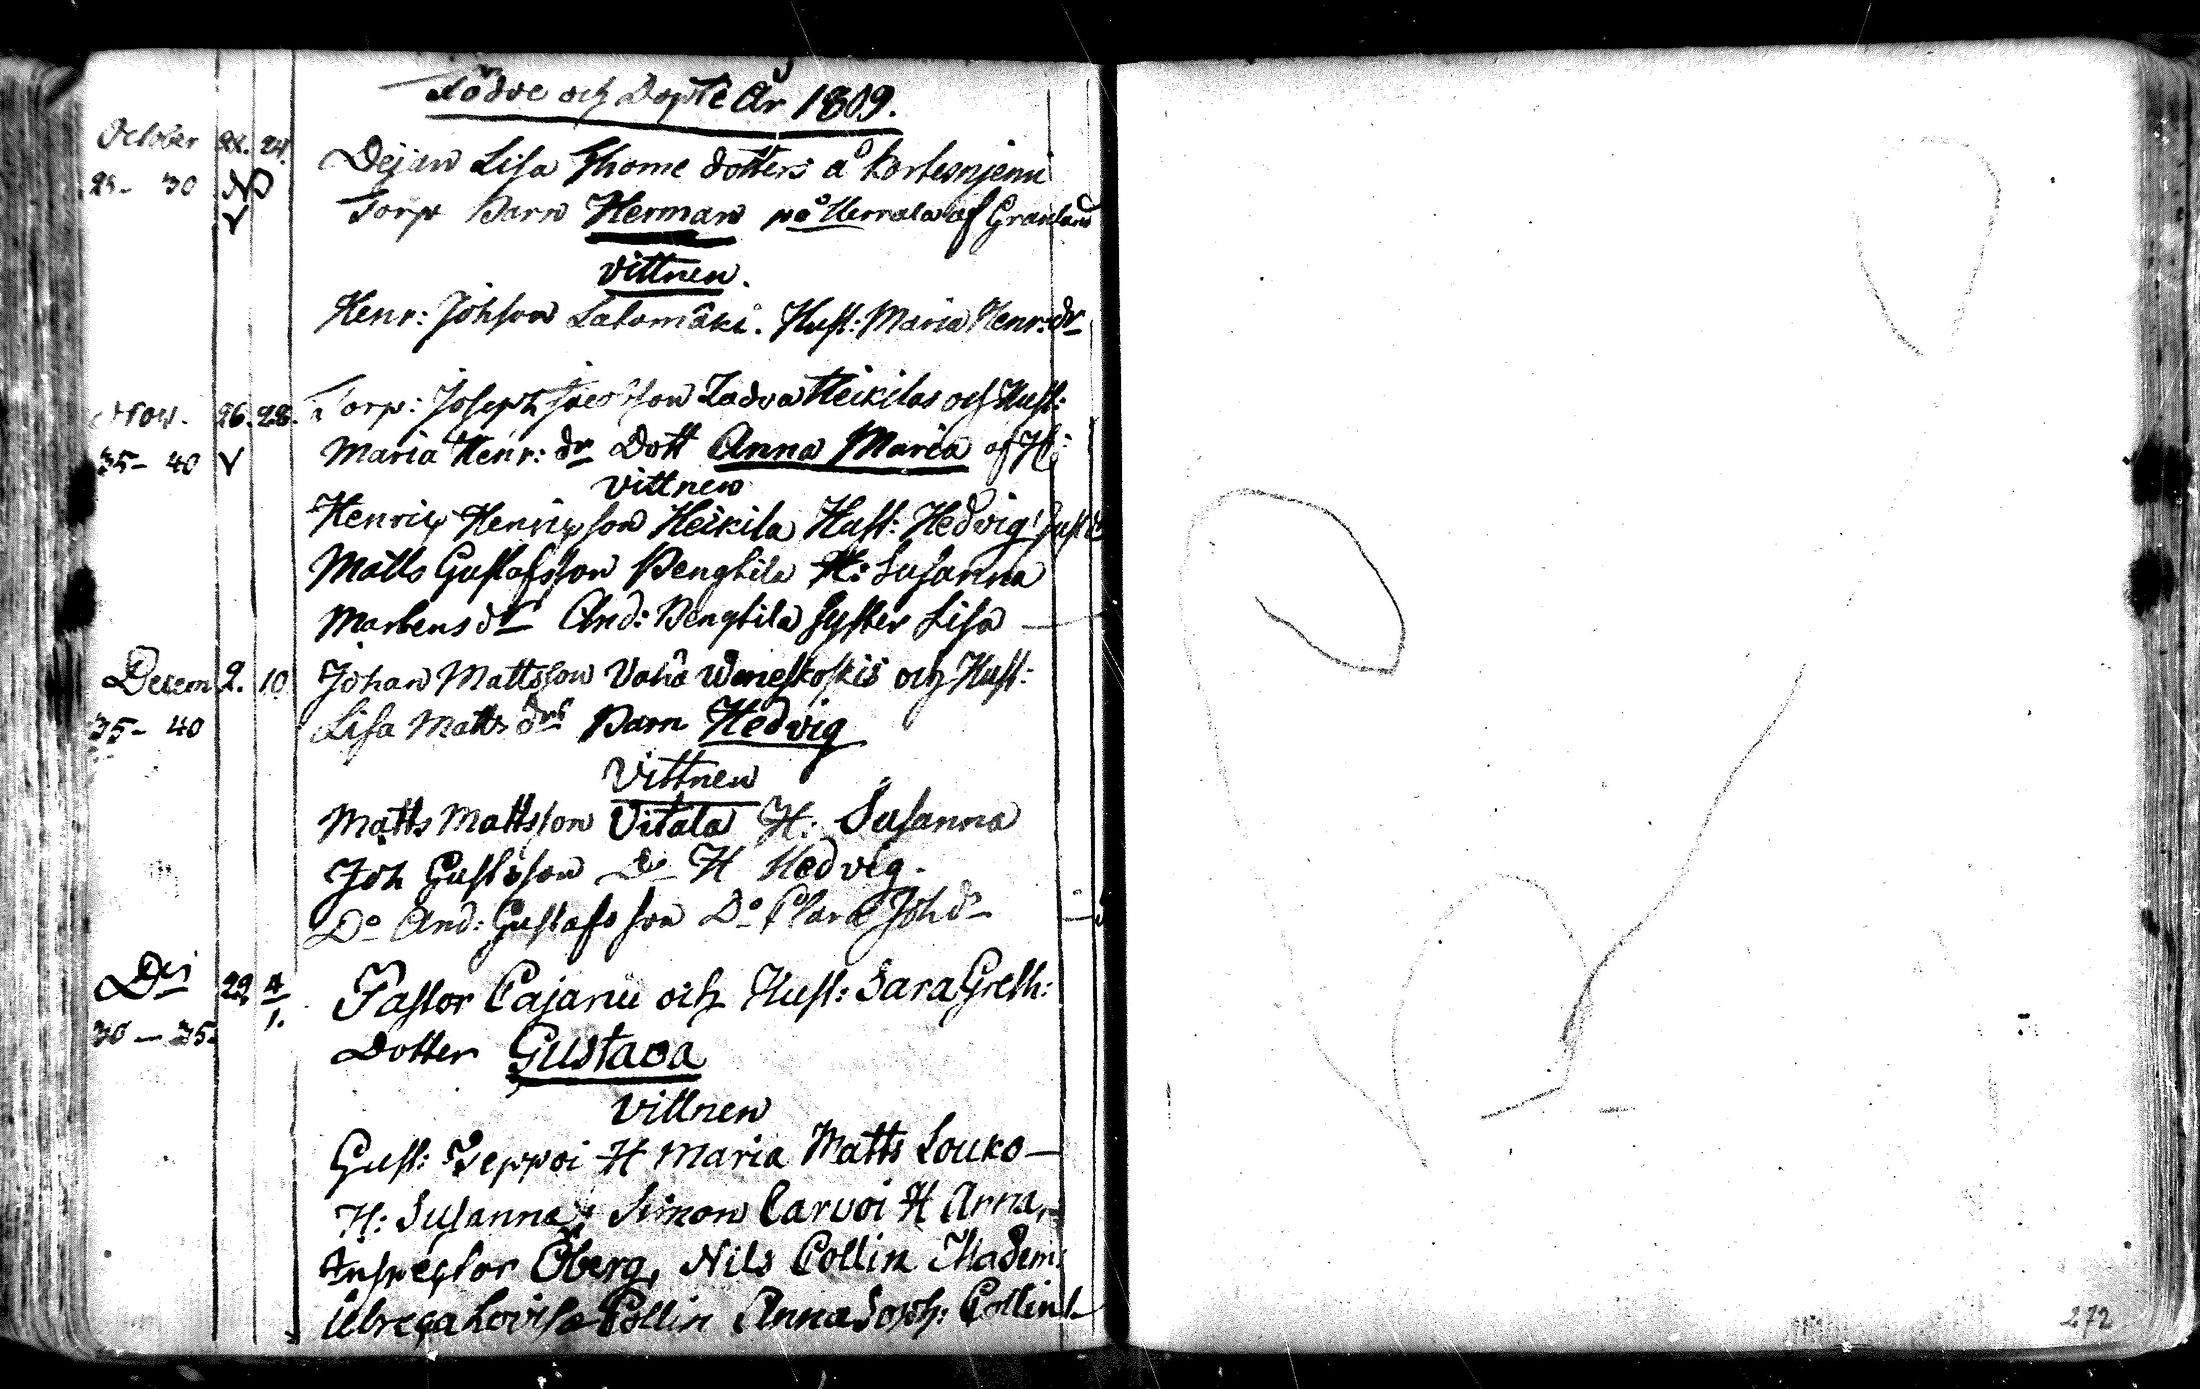 Födde och Döpte År 1809.
October 22. 24. Dejan Lisa Thome dotters å Kortesnjemi
25- 30 Torp Barn Herman på Herrala af Granland
Vittnen.
Henr: Johsson Salomäki. Hust: Maria Henr: dr
Nov. 26. 28. Torp: Joseph Jacobsson Ladva Heikilas och Hust:
35- 40 Maria Henr: dr Dott Anna Maria af H:
Vittnen
Henric Henricsson Heikila Hust: Hedvig
Matts Gustafsson Bengtila H: Susanna
Martens dr And: Bengtila syster Lisa
Decem 2. 10. Johan Mattsson Vähä och Hust:
35- 40 Lisa Matts drs Barn Hedvig
Vittnen
Matts Mattsson Vitala H: Susanna
Joh Gustsson Do H Hedvig.
Do And: Gustafsson Do Clara Joh dr
29 4/1. Pastor Cajanu och Hust: Sara Greth:
30 - 35. Dotter Gustava
Vittnen
Gust: Seppoi H Maria Matts Louko
H: Susanna, Simon Carvoi H Anna,
Inspector Öberg, Nils Collin Madem:
Ulrica Lovisa Collin Anna Soph: Collin
272